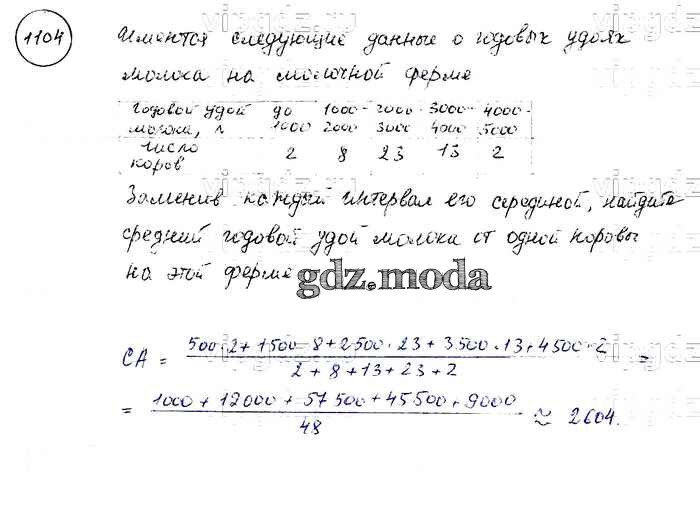 1104
Имеются следующие данные о годовых удоях
молока на молочной ферме
годовой удой до 1000- 2000- 3000- 4000-
молока, л 1000 2000 3000 4000 5000
число
коров 2 8 23 13 2
Заменив каждый интервал его серединой, найдите
средний годовой удой молока от одной коровы
на этой ферме
gdz.moda
CA = 500·2+1500·8+2500·23+3500·13+4500·2 =
2+8+13+23+2
= 1000+12000+57500+45500+9000 ≈ 2604.
48